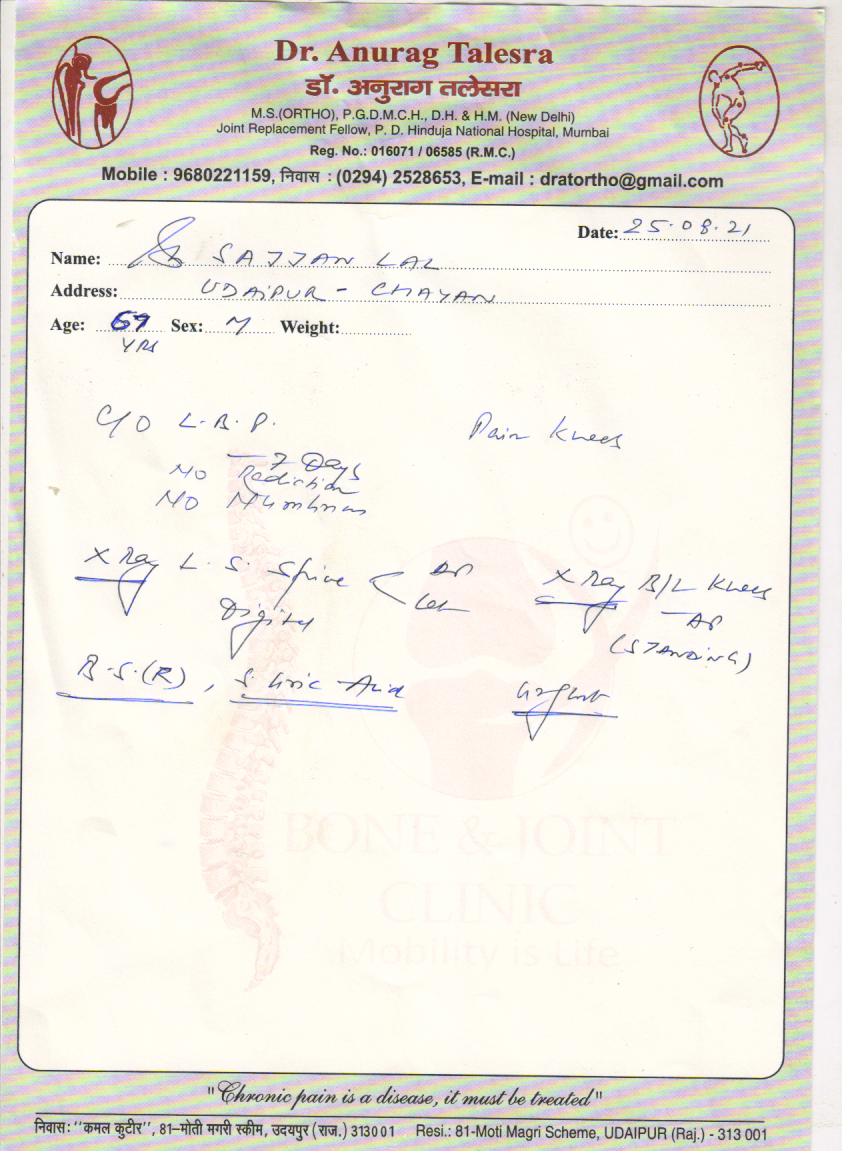 Dr. Anurag Talesra
डॉ. अनुराग तलेसरा
M.S.(ORTHO), P.G.D.M.C.H., D.H. & H.M. (New Delhi)
Joint Replacement Fellow, P. D. Hinduja National Hospital, Mumbai
Reg. No.: 016071 / 06585 (R.M.C.)
Mobile : 9680221159, निवास : (0294) 2528653, E-mail : dratortho@gmail.com
Date: 25.08.21
Name: SAJJAN LAL
Address: UDAIPUR - CHAYAN
Age: Sex: M Weight:
YRS
C/O L.B.P. Pain Knees
- 7 Days
NO Radiation
NO Numbness
X Ray L. S. Spine AP X Ray B/L Knees
Lat - AP
Digital (STANDING)
B.S.(R), S. Uric Acid Urgent
BONE & JOINT
CLINIC
Mobility is Life
"Chronic pain is a disease, it must be treated"
निवास: "कमल कुटीर", 81–मोती मगरी स्कीम, उदयपुर (राज.) 313001 Resi.: 81-Moti Magri Scheme, UDAIPUR (Raj.) - 313 001